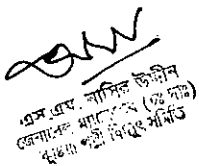 এস এম নাসির উদ্দীন
জেনারেল ম্যানেজার (চঃ দাঃ)
পল্লী বিদ্যুৎ সমিতি